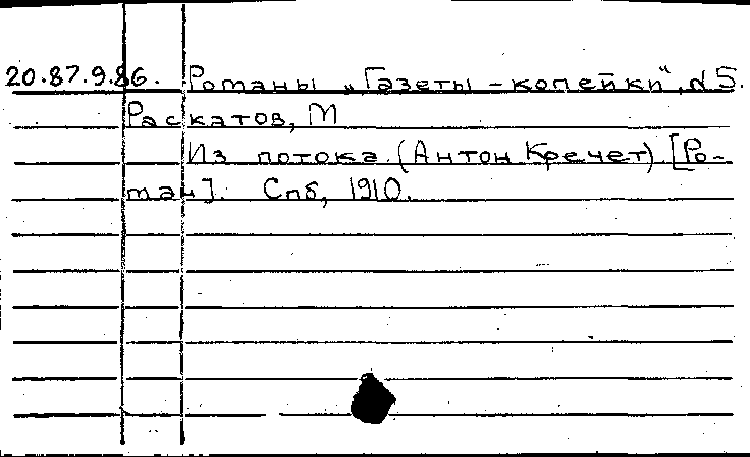 20.87.9.86. Романы „Газеты-копейки“, №5.
Раскатов, М
Из потока. (Антон Кречет). [Ро-
ман]. Спб, 1910.